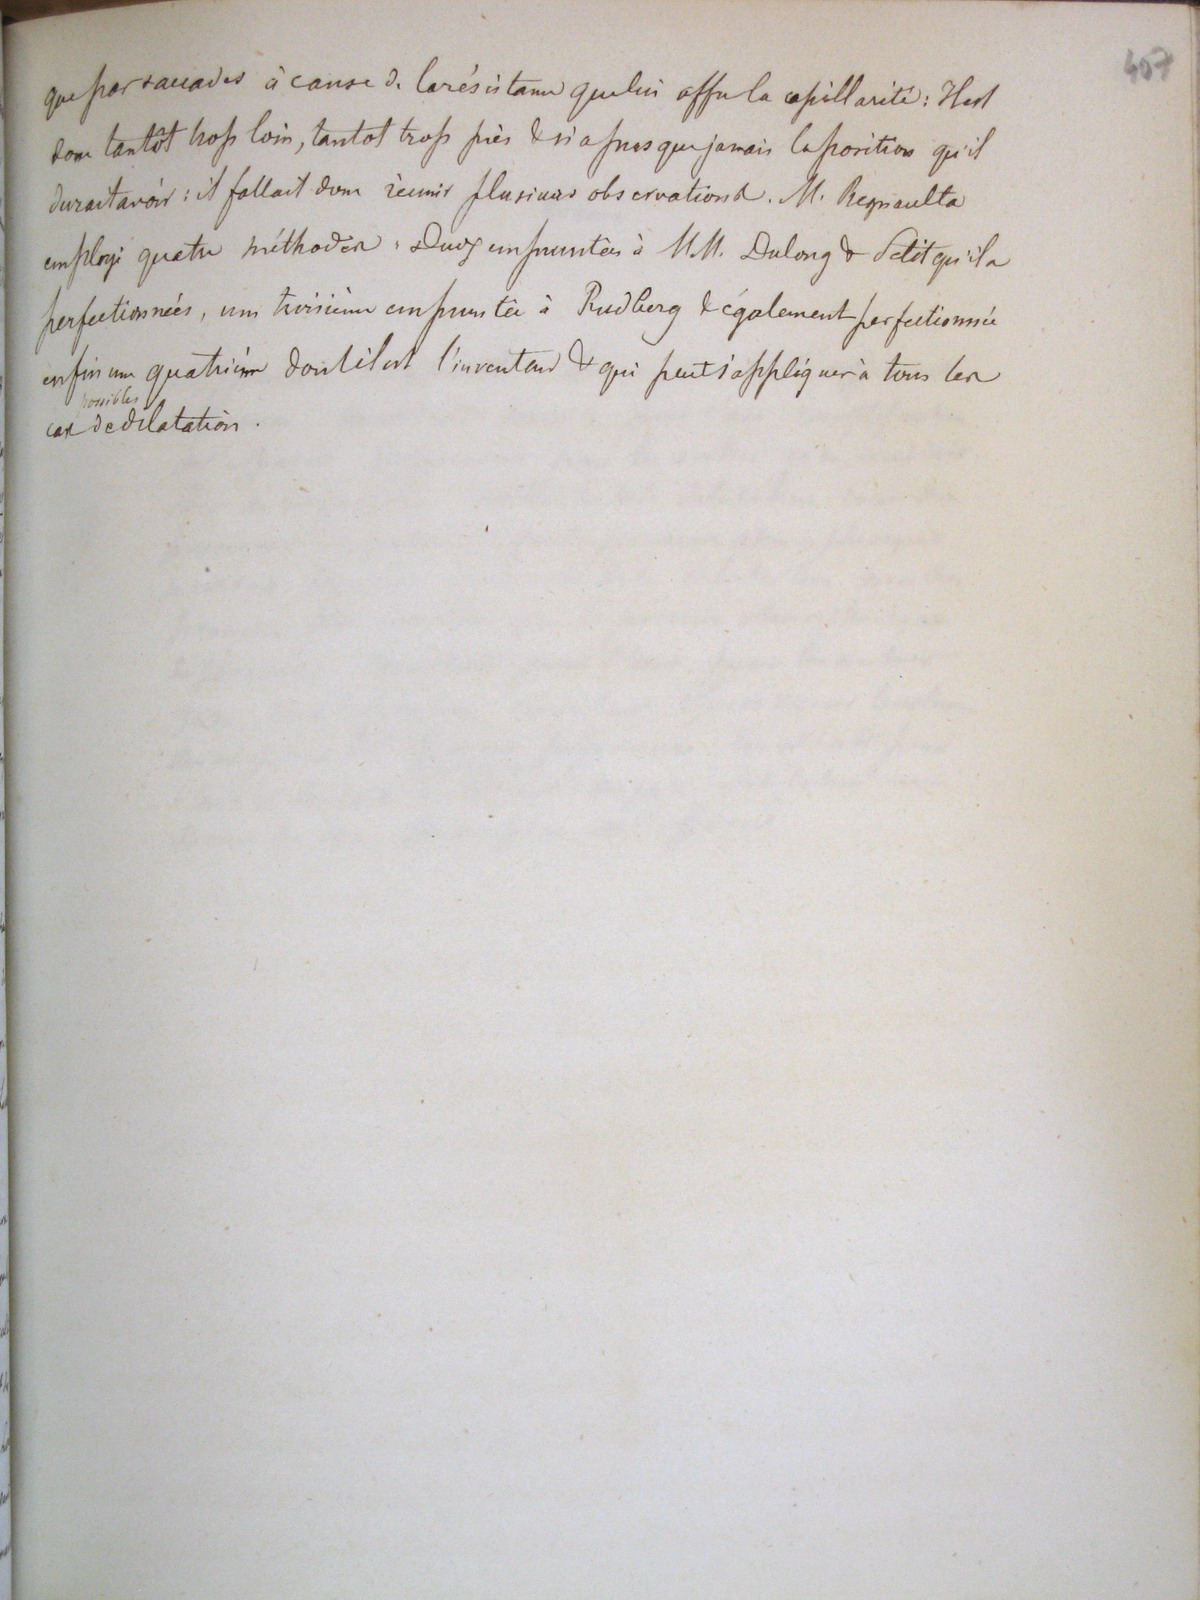 407
que par saccades à cause de la résistance que lui offre la capillarité : Il est
donc tantôt trop loin, tantot trop près & n'a presque jamais la position qu'il
devrait avoir : il fallait donc réunir plusieurs observations. M. Regnault a
employé quatre méthodes : Deux empruntées à MM. Dulong & Petit qu'il a
perfectionnées, une troisième empruntée à Rudberg & également perfectionnée
enfin une quatrième dont il est l'inventeur & qui peut s'appliquer à tous les
possibles
cas de dilatation.